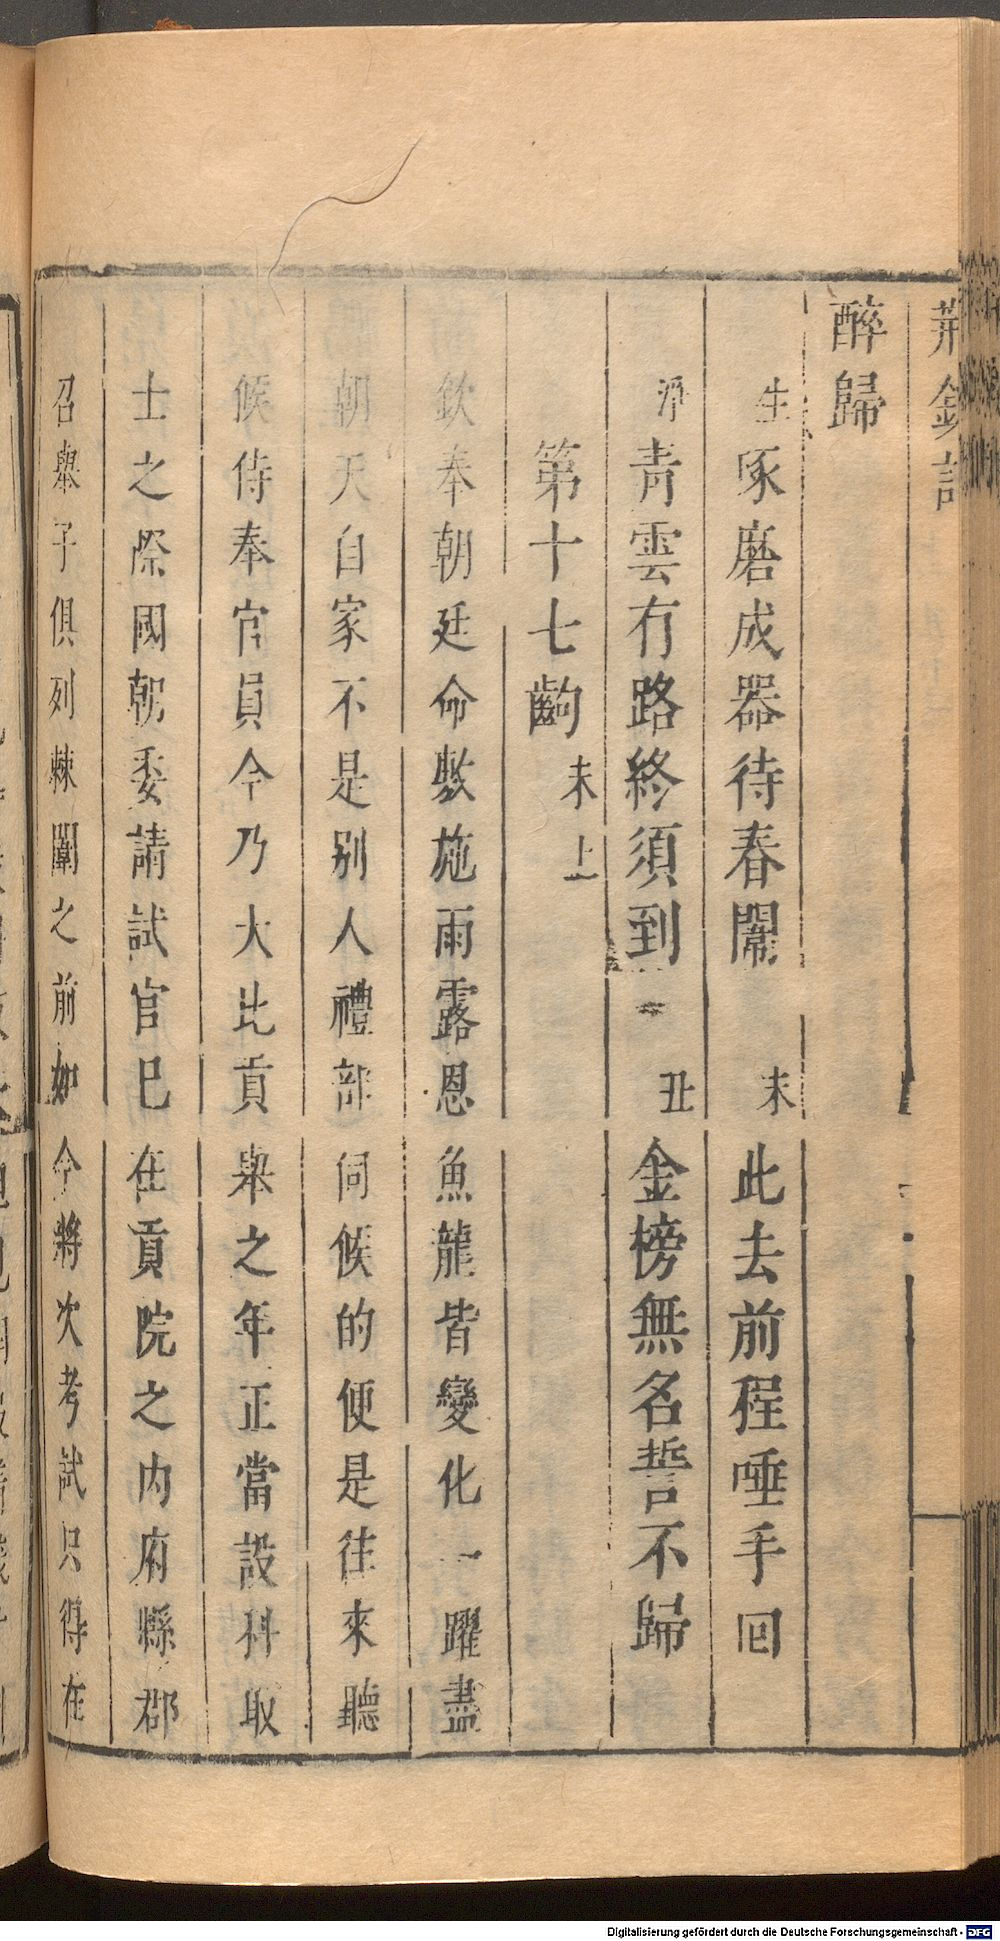 荆釵記
醉歸
生琢磨成器待春闈 末此去前程唾手回
淨青雲有路終須到 丑金榜無名誓不歸
第十七齣 末上
欽奉朝廷命敷施雨露恩魚龍皆變化一躍盡
朝天自家不是别人禮部伺候的便是往來聽
候侍奉官員今乃大比貢舉之年正當設科取
士之際國朝委請試官已在貢院之内府縣郡
召舉子俱列棘闈之前如今將次考試只得在
Digitalisierung gefördert durch die Deutsche Forschungsgemeinschaft - DFG